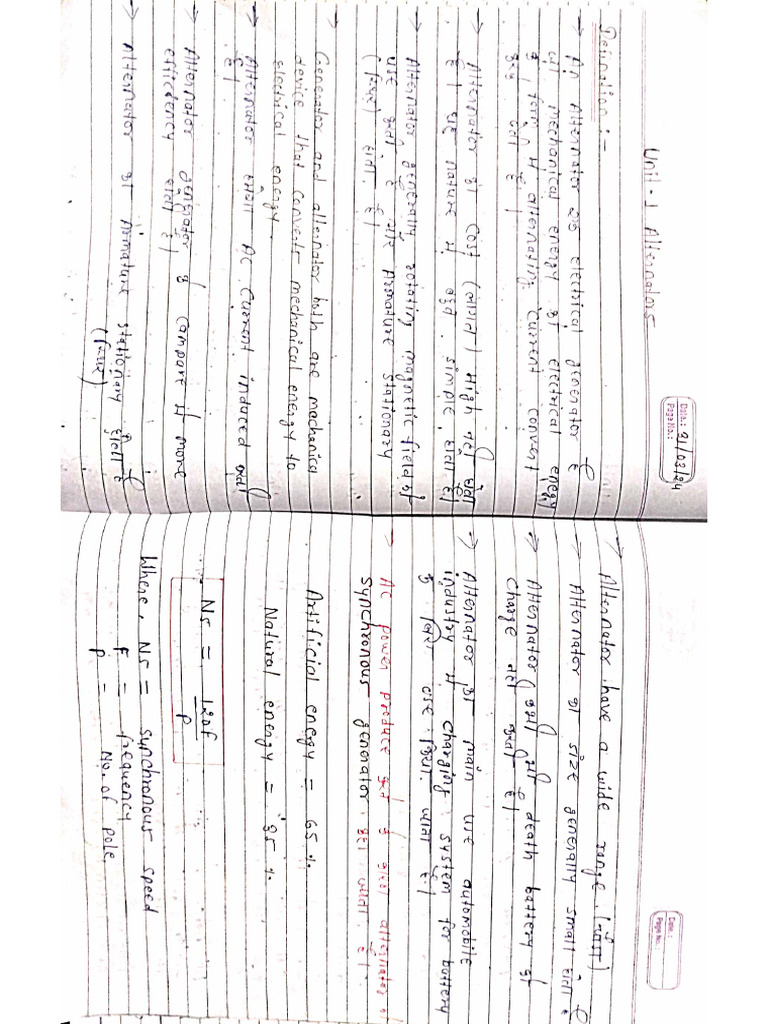 Date: 21/03/24
Page No.:
Unit-1 Alternators
Defination :-
→ An Alternator एक electrical generator है
जो mechanical energy को electrical energy
के form में alternating current convert
कर देती है।
→ Alternator का cost (लागत) High नहीं होती
है। यह nature में बहुत simple होता है।
→ Alternator generally rotating magnetic field का
use करती है और Armature stationary
(स्थिर) होता है।
→ Generator and alternator both are mechanical
device that converts mechanical energy to
electrical energy.
→ Alternator हमेशा AC current induced करता
है।
→ Alternator generator के compare में more
efficdency होती है।
→ Alternator का Armature stationary होता है
(स्थिर)
Date:
Page No.:
→ Alternator have a wide range.
→ Alternator का size generally small होता है
→ Alternator कभी भी death battery को
charge नहीं करती है।
→ Alternator का main use automobile
industry में charging system for battery
के लिए use किया जाता है।
→ AC power produce करने के लिए alternator को
synchronous generator कहा जाता है।
Artificial energy = 65 %.
Natural energy = 35 %.
Ns = 120f / P
Where, Ns = synchronous speed
F = frequency
P = No. of pole